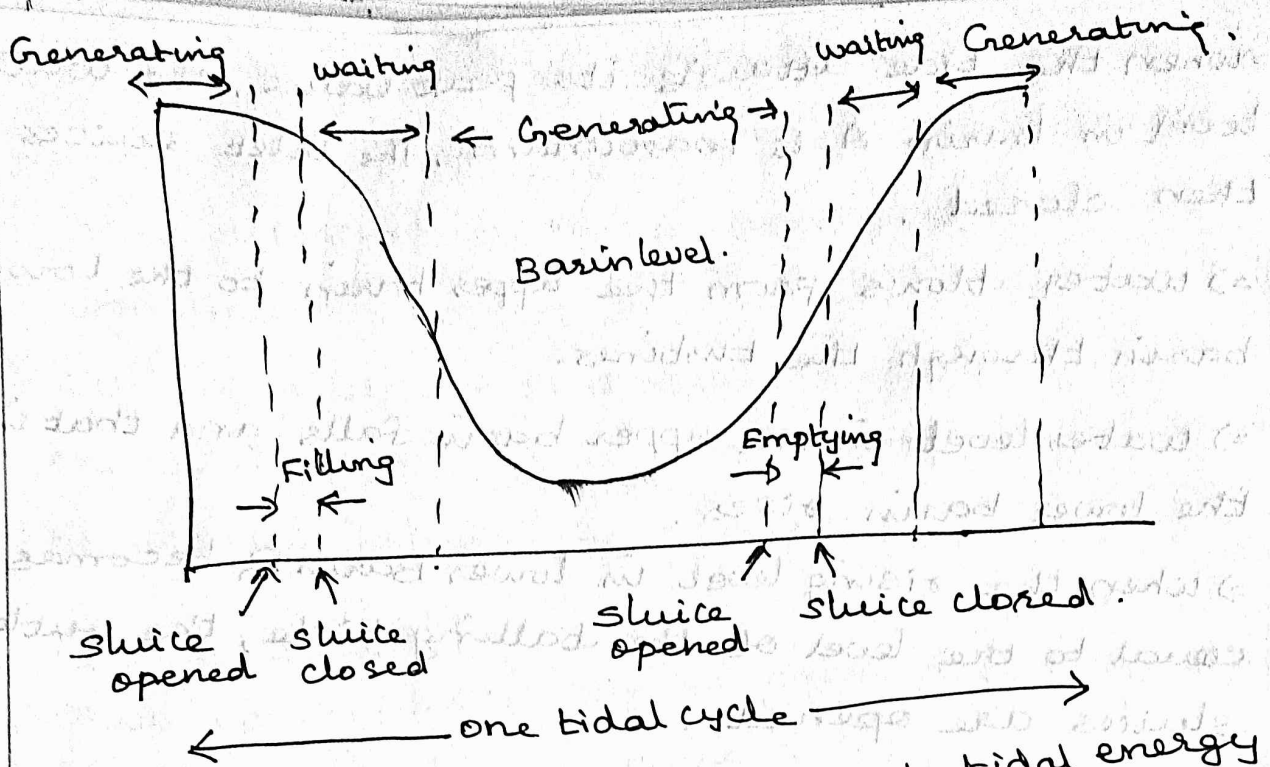 Generating
waiting
waiting
Generating.
Generating
Basin level.
Filling
Emptying
sluice
opened
sluice
closed
sluice
opened
sluice closed.
one tidal cycle
tidal energy